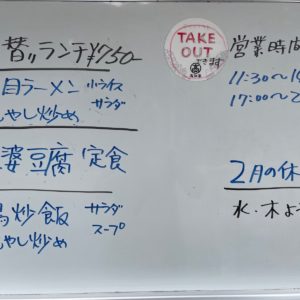 替りランチ¥750-
目ラーメン 小ライス
サラダ
やし炒め
婆豆腐 定食
炒飯 サラダ
スープ
やし炒め
TAKE
OUT
できます
営業時間
11:30～1
17:00～2
2月の休
水・木よ